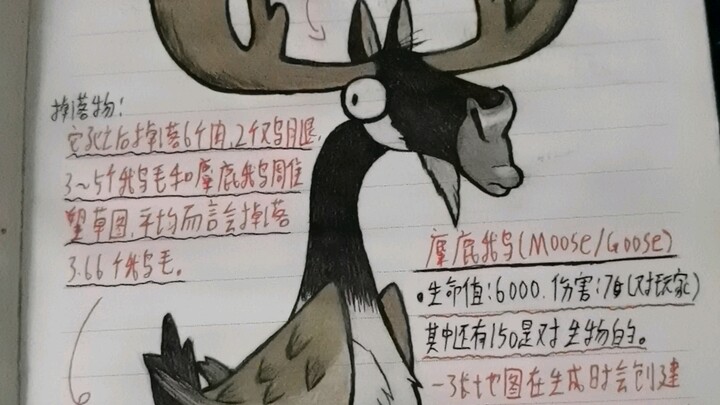 掉落物:
它死之后掉落6个肉,2个鸡腿,
3~5个鹅毛和麋鹿鹅周住
蓝草图,平均而言会掉落
3.66个鹅毛。
麋鹿鹅(Moose/Goose)
·生命值:6000.伤害:75(对玩家)
其中还有150是对生物的。
一张地图在生成时会创建